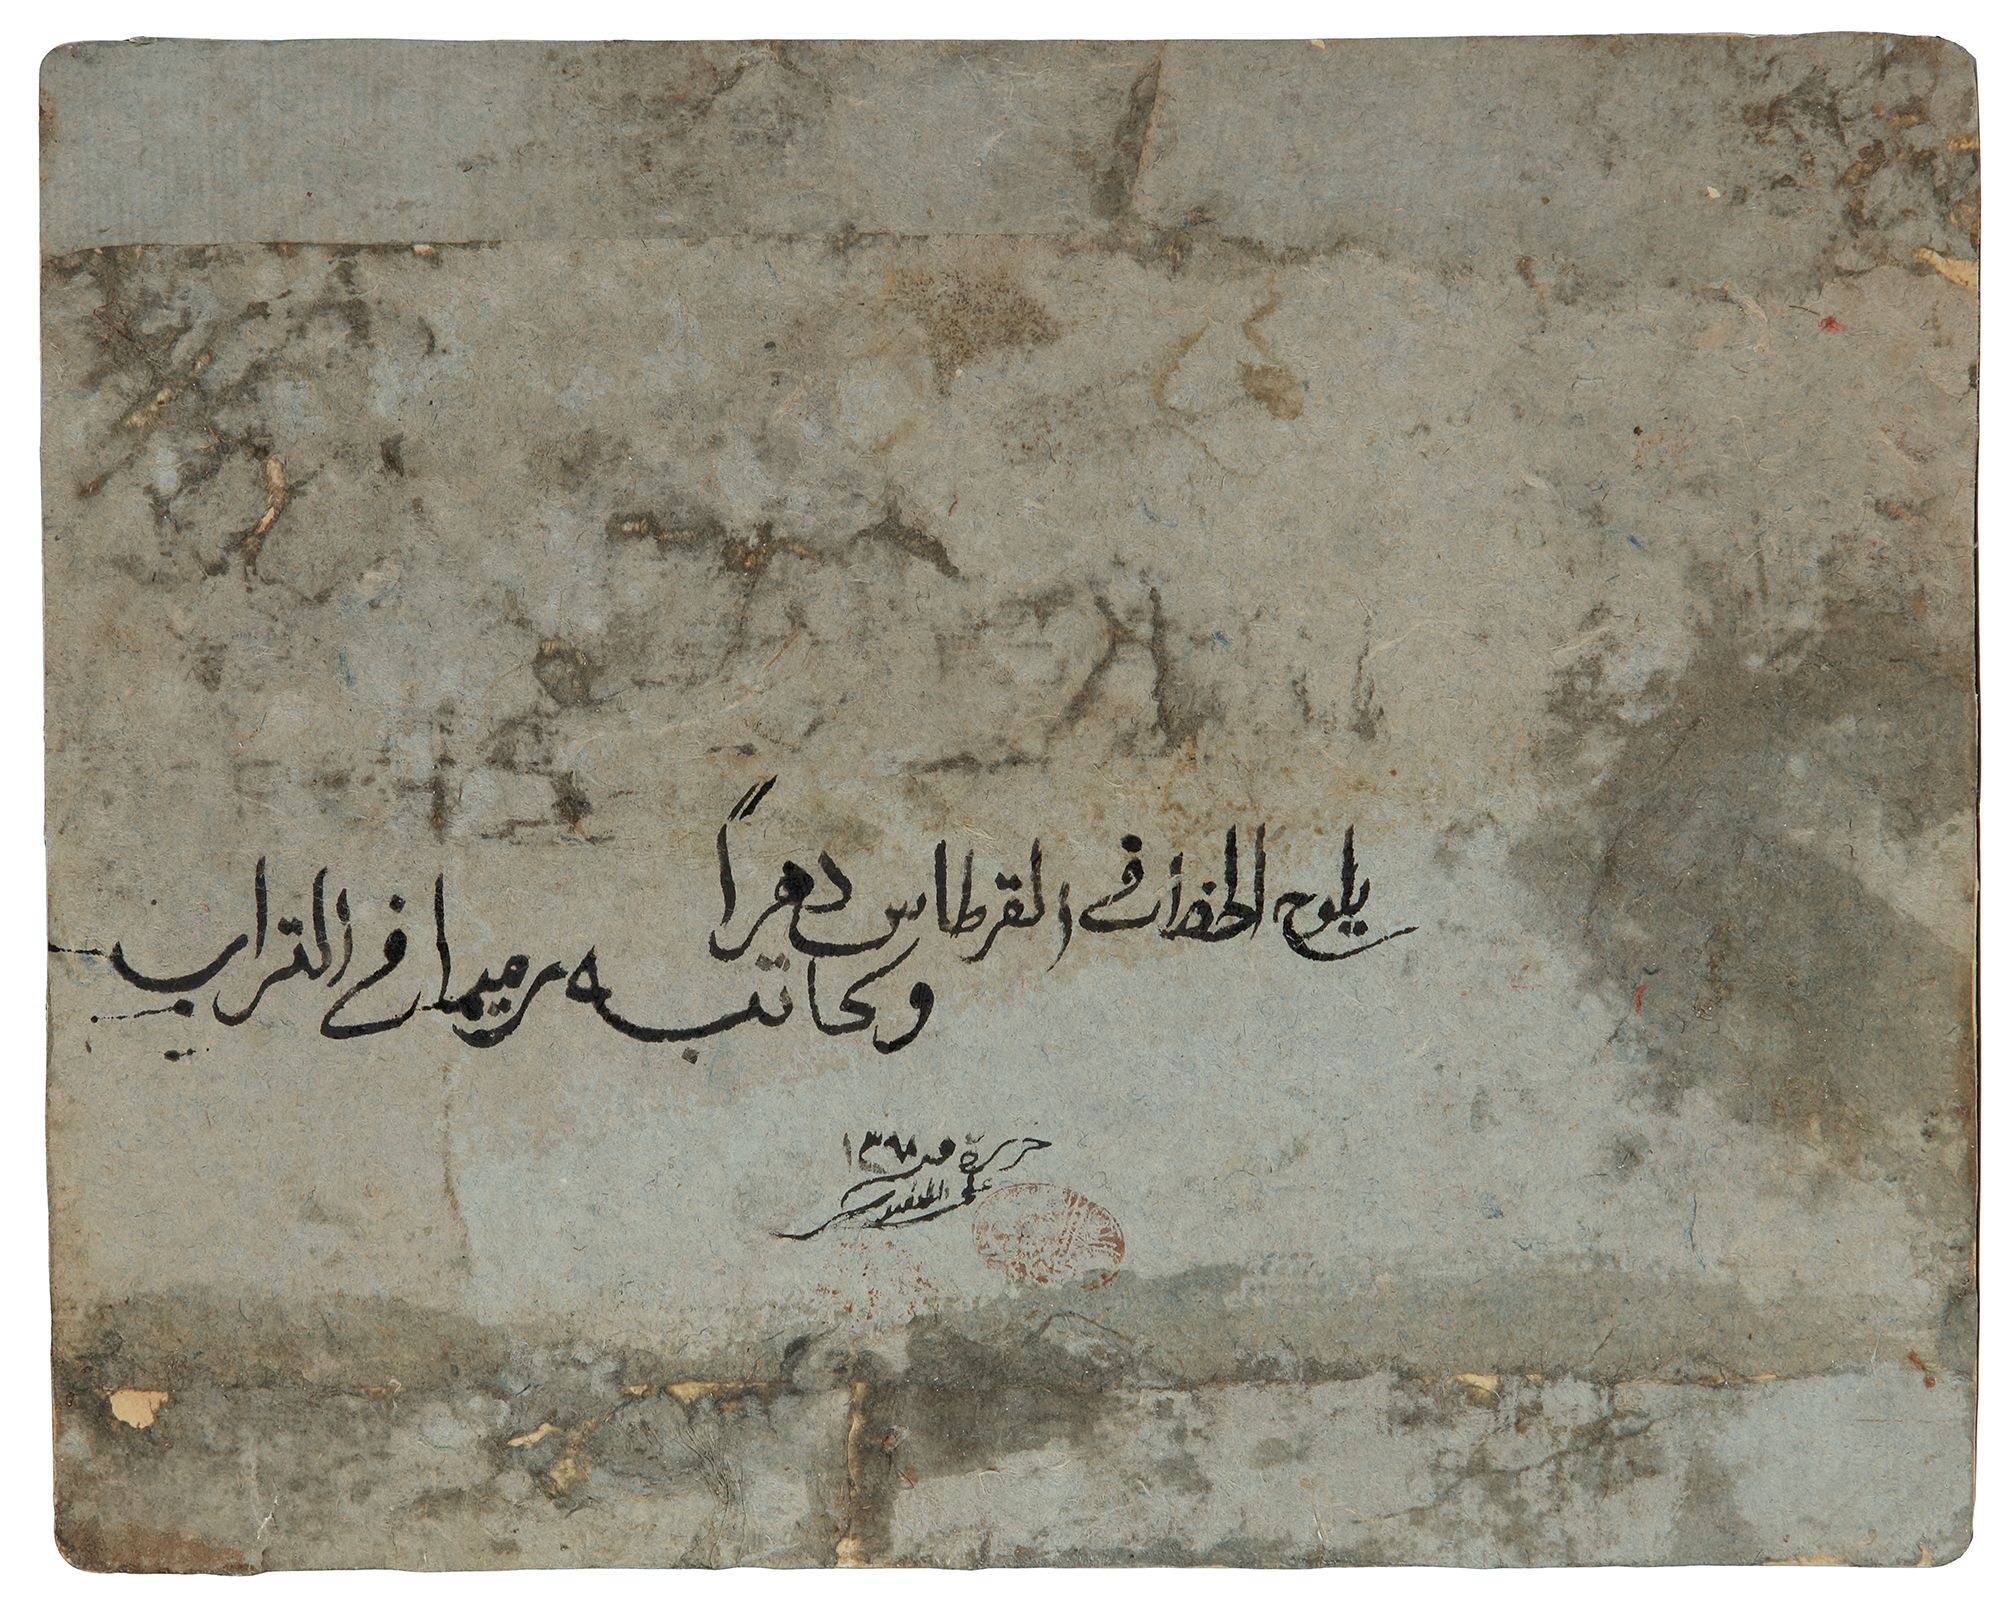 يلوح الخط في القرطاس دهراً
وكاتبه رميما في التراب
حرره في ١٣٩٨
على